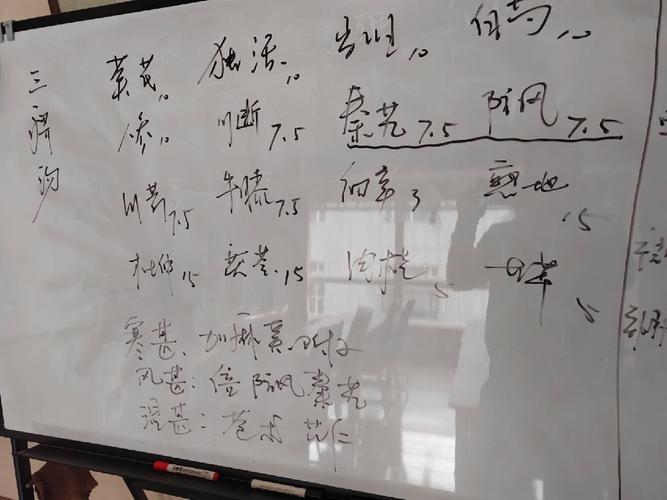 三痹汤
黄芪10 独活10 当归10 白芍10
参10 川断7.5 秦艽7.5 防风7.5
川芎7.5 牛膝7.5 细辛3 熟地15
杜仲15 茯苓15 肉桂5 甘草5
寒甚:加麻黄 附子
风甚:倍防风秦艽
湿甚:苍术 苡仁